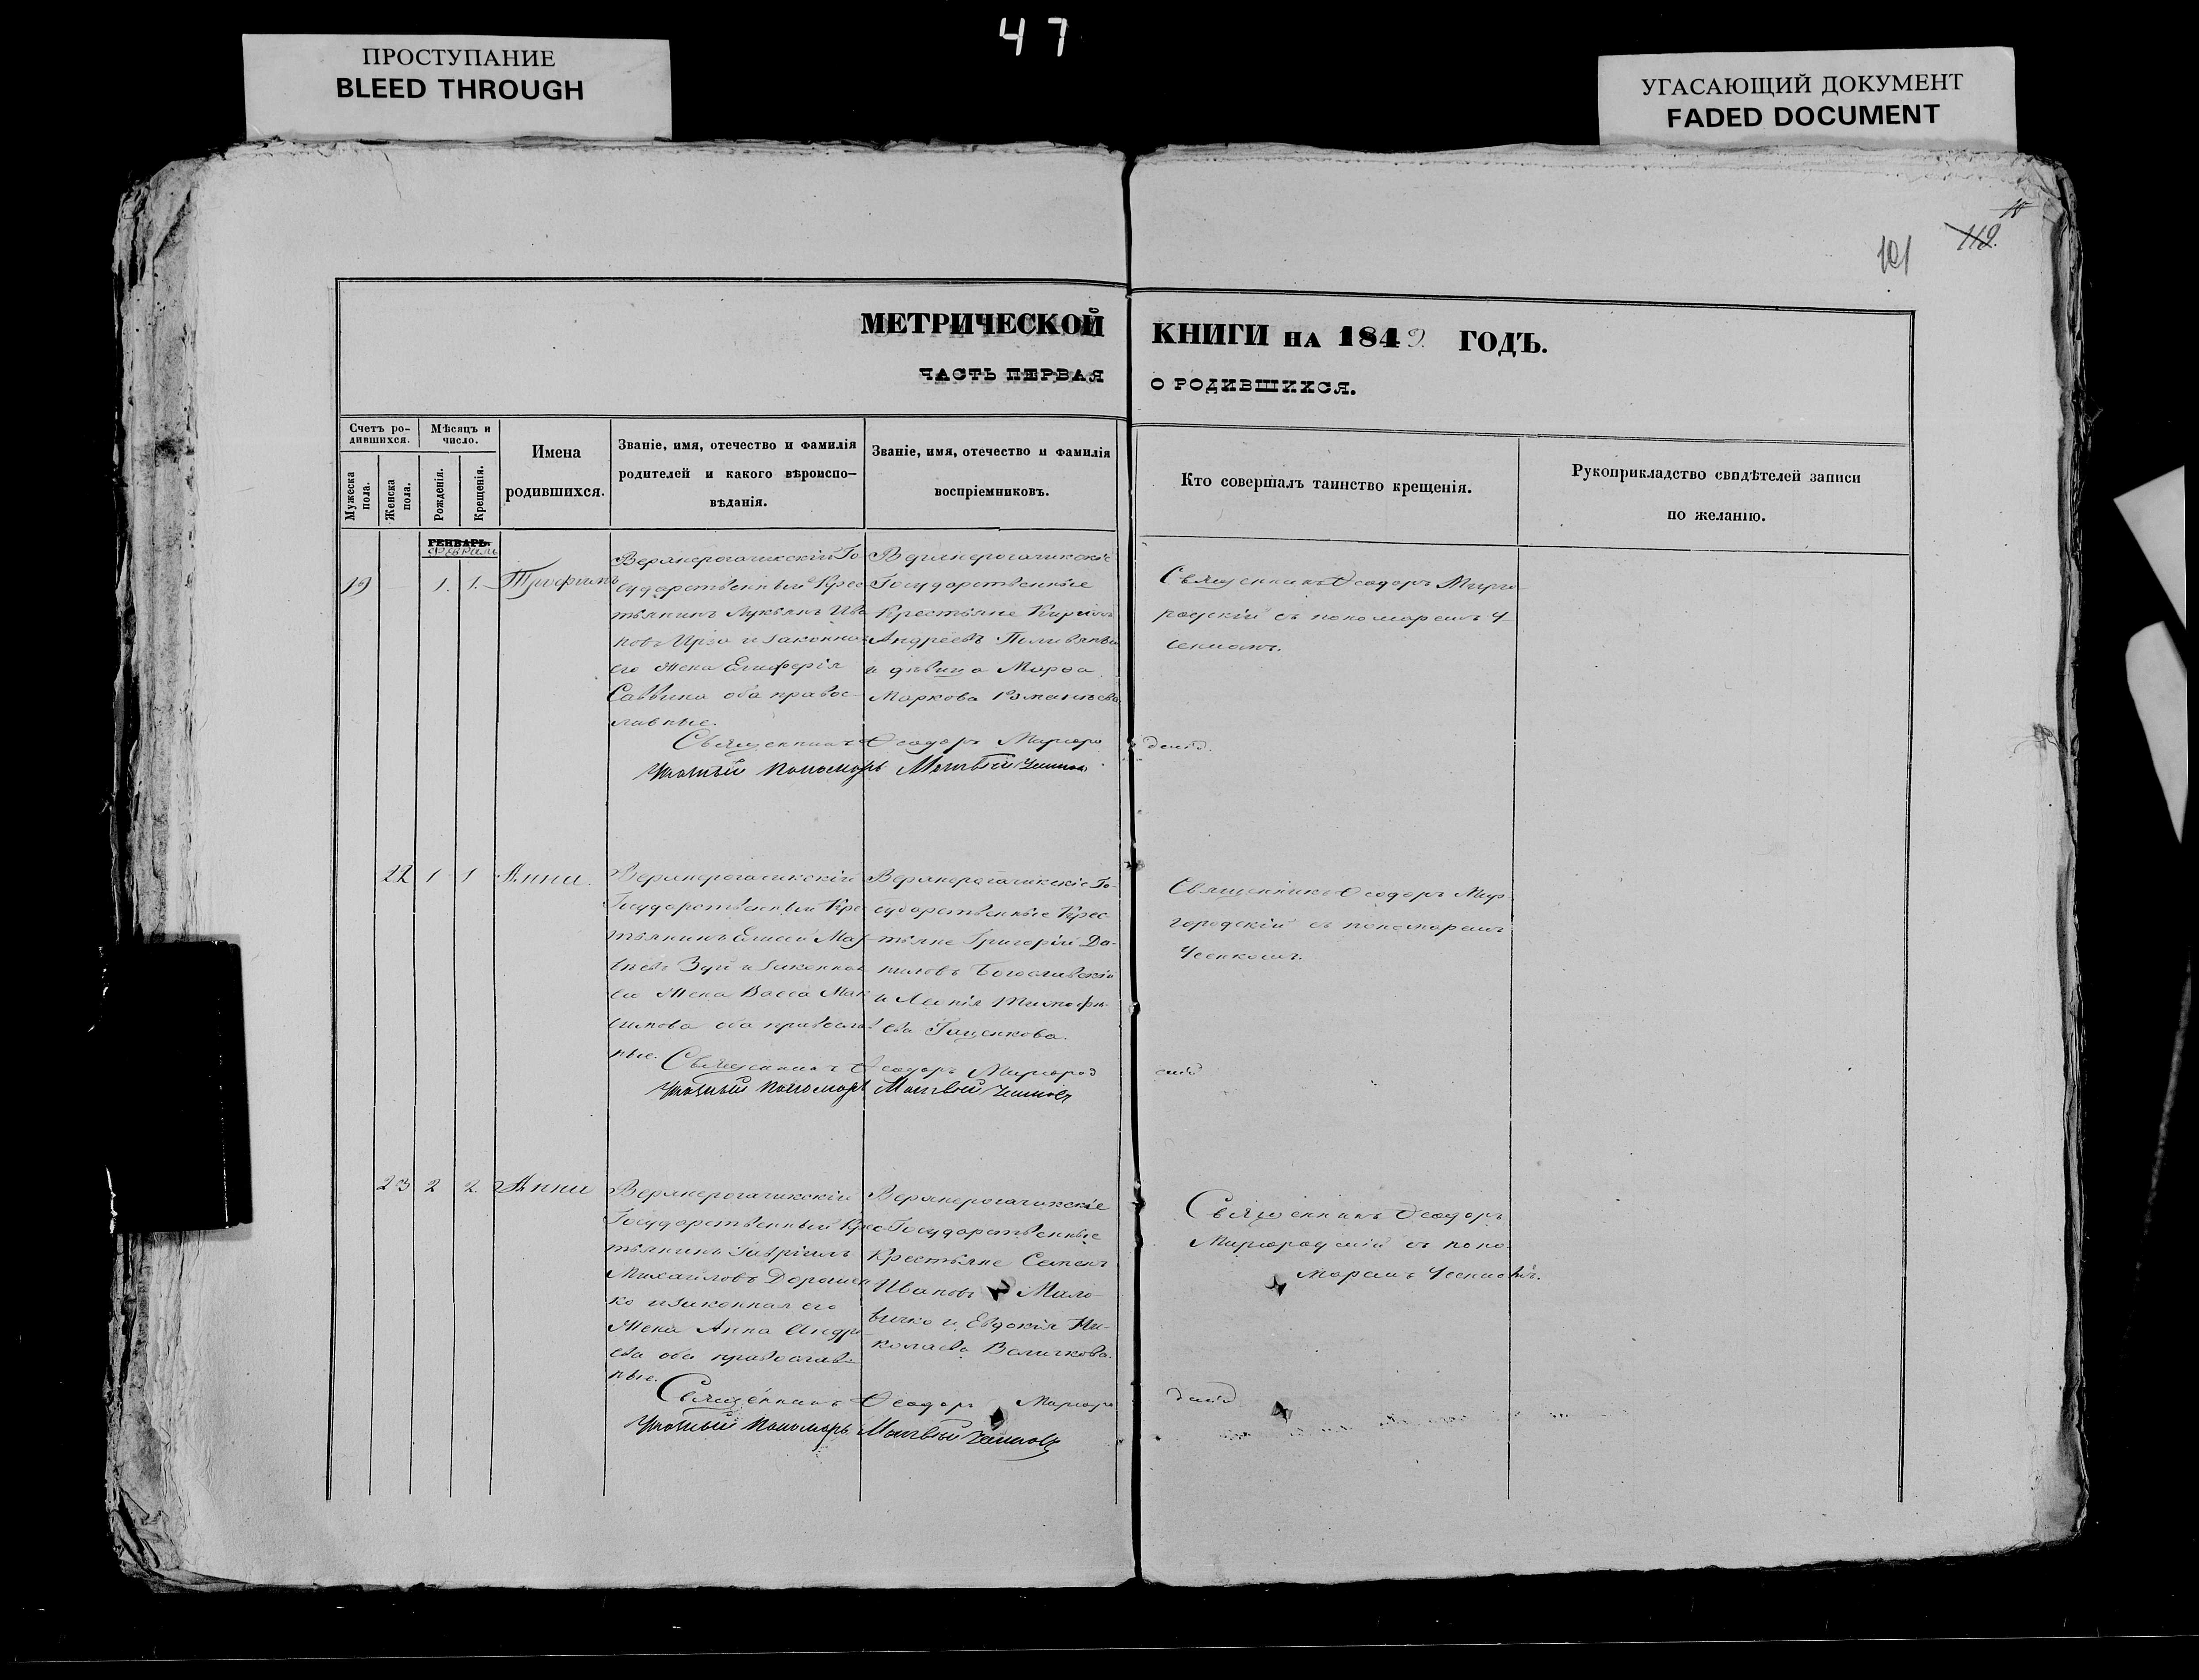 47
ПРОСТУПАНИЕ
BLEED THROUGH
УГАСАЮЩИЙ ДОКУМЕНТ
FADED DOCUMENT
101
МЕТРИЧЕСКОЙ КНИГИ НА 1849 ГОДЪ.
ЧАСТЬ ПЕРВАЯ О РОДИВШИХСЯ.
Счетъ ро-
дившихся.
Мужеска
пола.
Женска
пола.
Мѣсяцъ и
число.
Рожденія.
Крещенія.
Имена
родившихся.
Званіе, имя, отечество и фамилія
родителей и какого вѣроиспо-
вѣданія.
Званіе, имя, отечество и фамилія
воспріемниковъ.
Кто совершалъ таинство крещенія.
Рукоприкладство свидѣтелей записи
по желанію.
ГЕНВАРЬ
Февраль
19 1. 1. Трофимъ
Верхнерогачикскій Го
сударственный Крес
тьянинъ Лукьянъ Ива
новъ и законная
его жена
Саввина оба правос
лавные.
Верхнерогачикскіе
Государственные
Крестьяне Кирилъ
Андреевъ
и дѣвица Марѳа
Маркова
Священникъ Ѳеодоръ Мирго
родскій съ пономаремъ Ч
Священникъ Ѳеодоръ Миргоро
дскій
Пономарь Матвѣй
22 1 1 Анна.
Верхнерогачикскій
Государственный Крес
тьянинъ Елисей Мат
вѣевъ Зуй и законная
его жена Васса Мак
симова оба православ
ные.
Верхнерогачикскіе Го-
сударственные Крес
тьяне Григорій Да-
ниловъ Богославскій
и Тимофѣ-
ева
Священникъ Ѳеодоръ Мир
городскій съ пономаремъ
Священникъ Ѳеодоръ Миргород
скій
Пономарь Матвѣй
23 2 2. Анна
Верхнерогачикскій
Государственный Крес
тьянинъ Гавріилъ
Михайловъ Дорошен
ко и законная его
жена Анна Андре
ева оба православ
ные.
Верхнерогачикскіе
Государственные
Крестьяне Семенъ
Ивановъ
и Евдокія Ни-
колаева Величкова.
Священникъ Ѳеодоръ
Миргородскій съ поно
маремъ
Священникъ Ѳеодоръ Миргоро
дскій
Пономарь Матвѣй